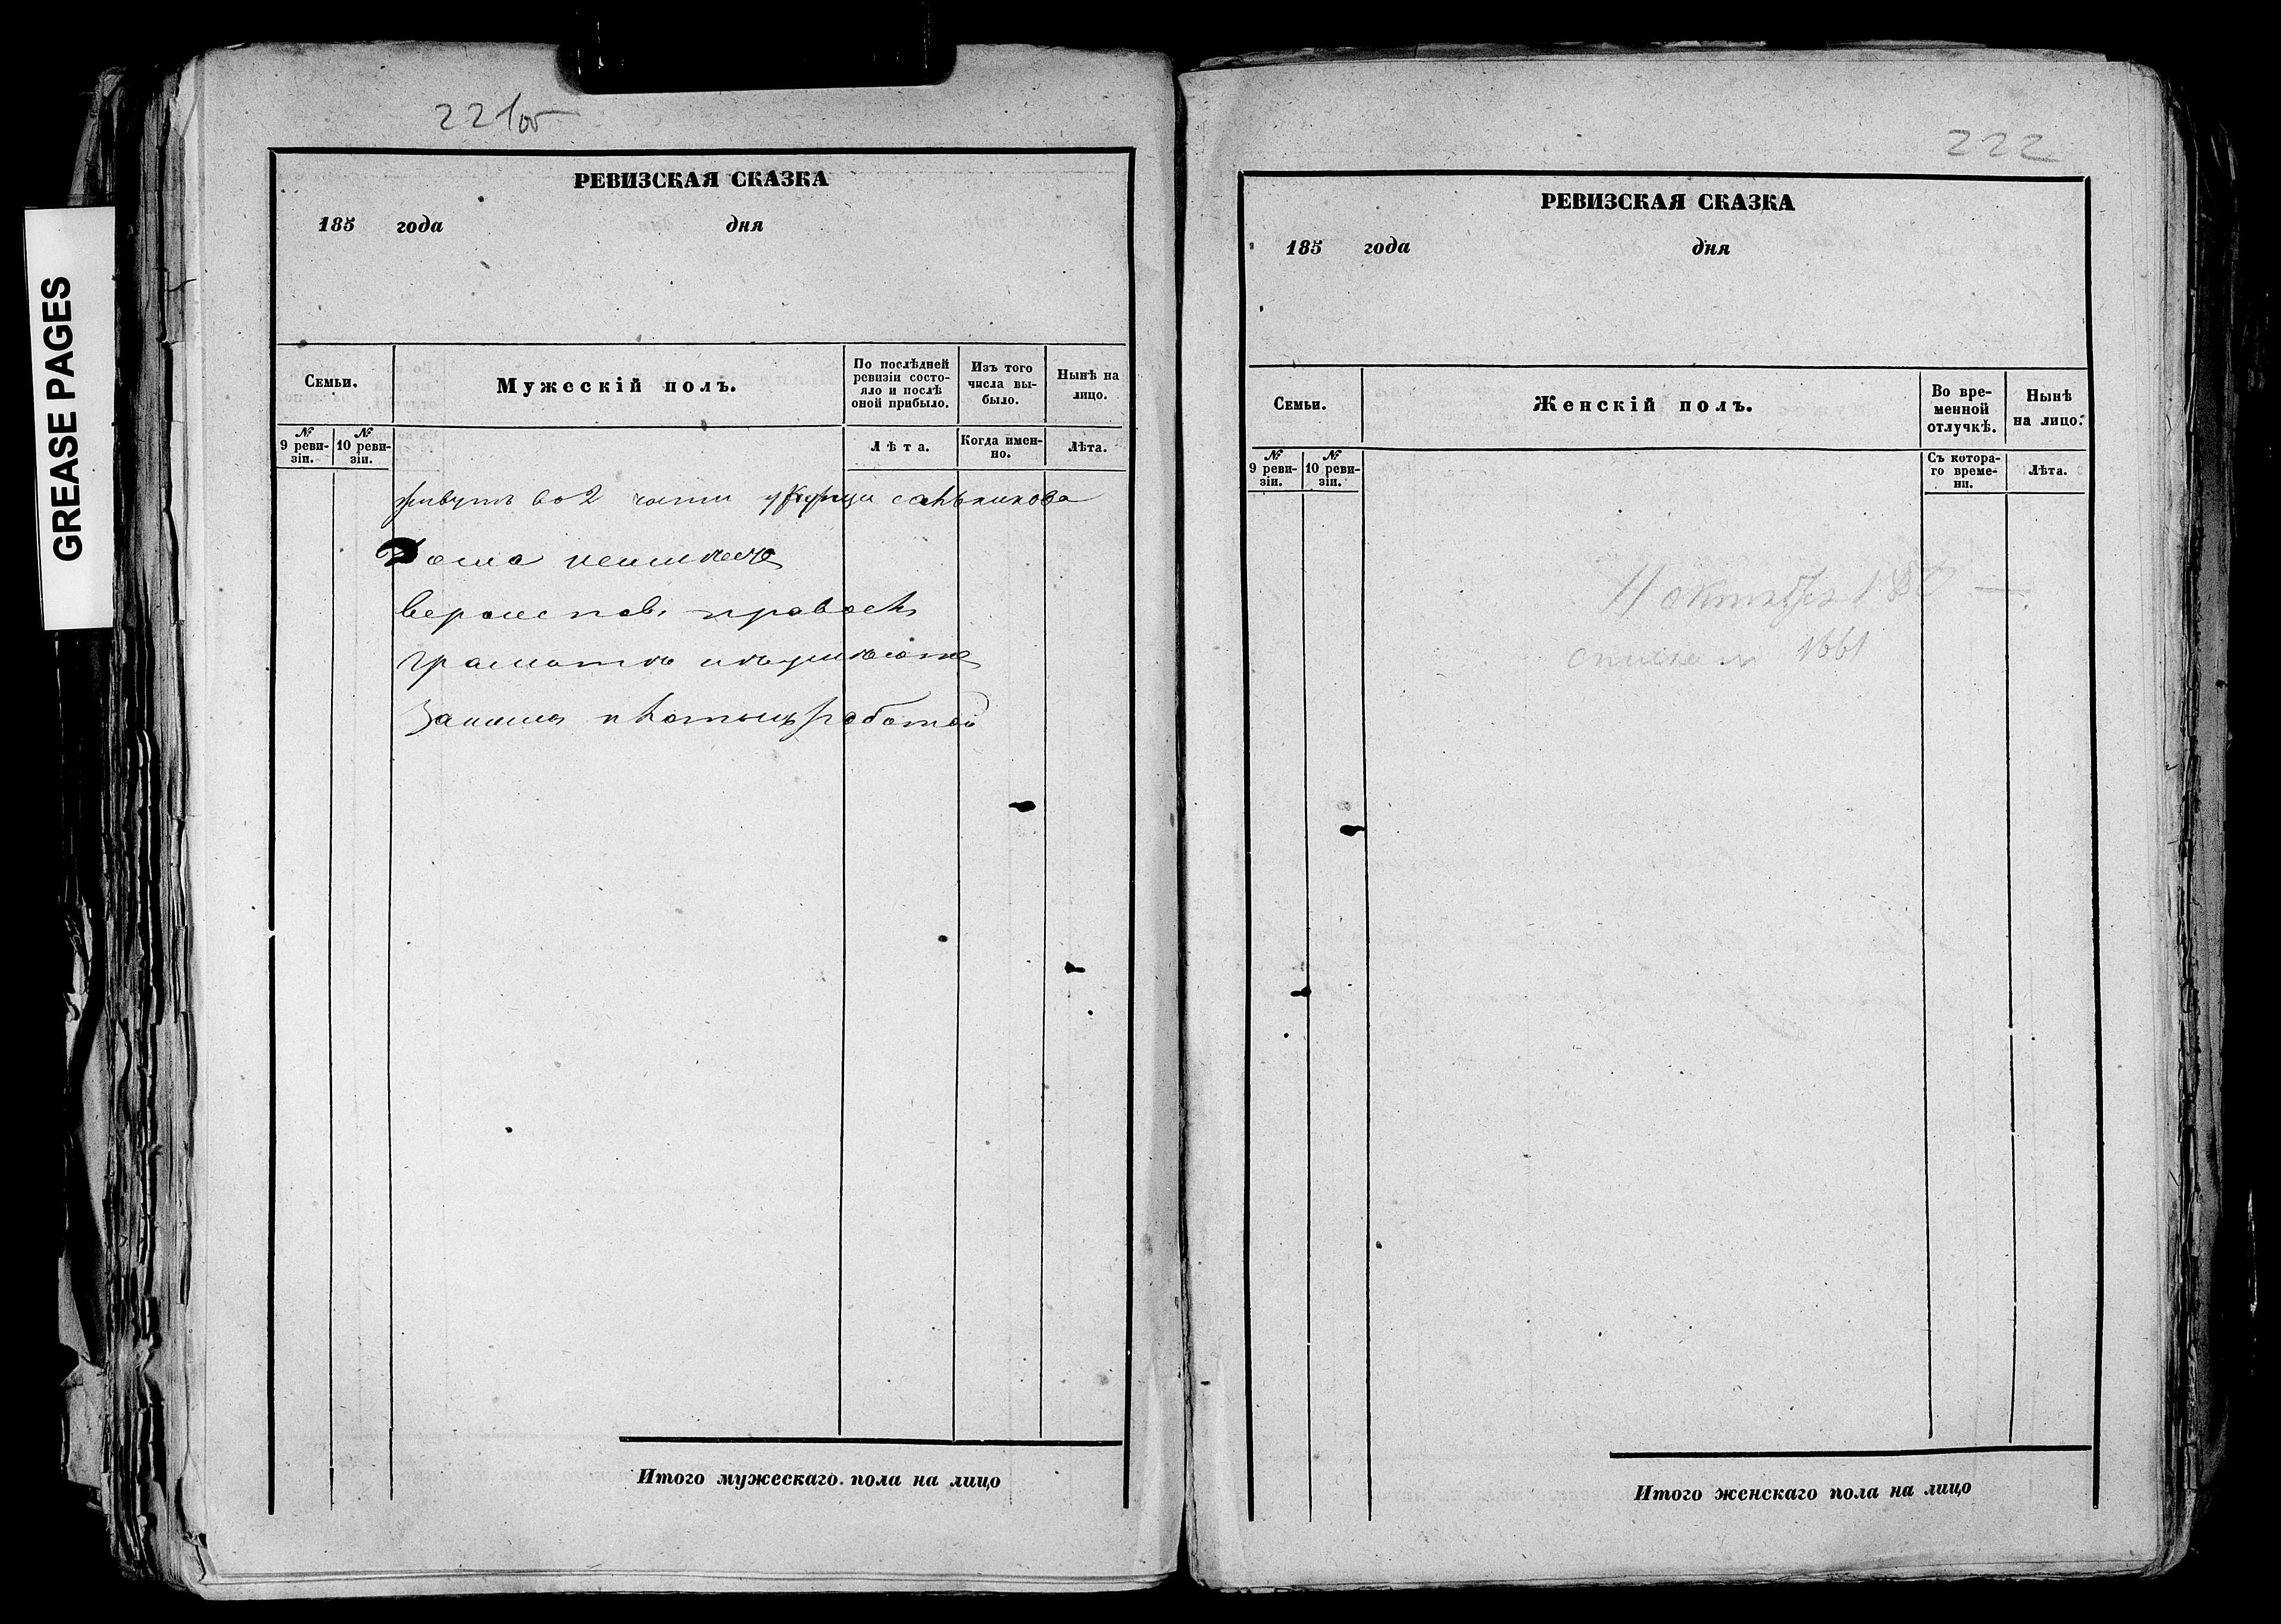 GREASE PAGES
221об
РЕВИЗСКАЯ СКАЗКА
185 года дня
Семьи.
Мужескій полъ.
По послѣдней ревизіи состо-
яло и послѣ оной прибыло.
Изъ того числа вы-
было.
Нынѣ на лицо.
№ 9 реви-
зіи.
№ 10 реви-
зіи.
Лѣта.
Когда имен-
но.
Лѣта.
живутъ во 2 части у Купца
Дома неимѣею
грамотѣ
работой
Итого мужескаго пола на лицо
222
РЕВИЗСКАЯ СКАЗКА
185 года дня
Семьи.
Женскій полъ.
Во вре-
менной отлучкѣ.
Нынѣ на лицо.
№ 9 реви-
зіи.
№ 10 реви-
зіи.
Съ котора-
го време-
ни.
Лѣта.
11 октября
Итого женскаго пола на лицо